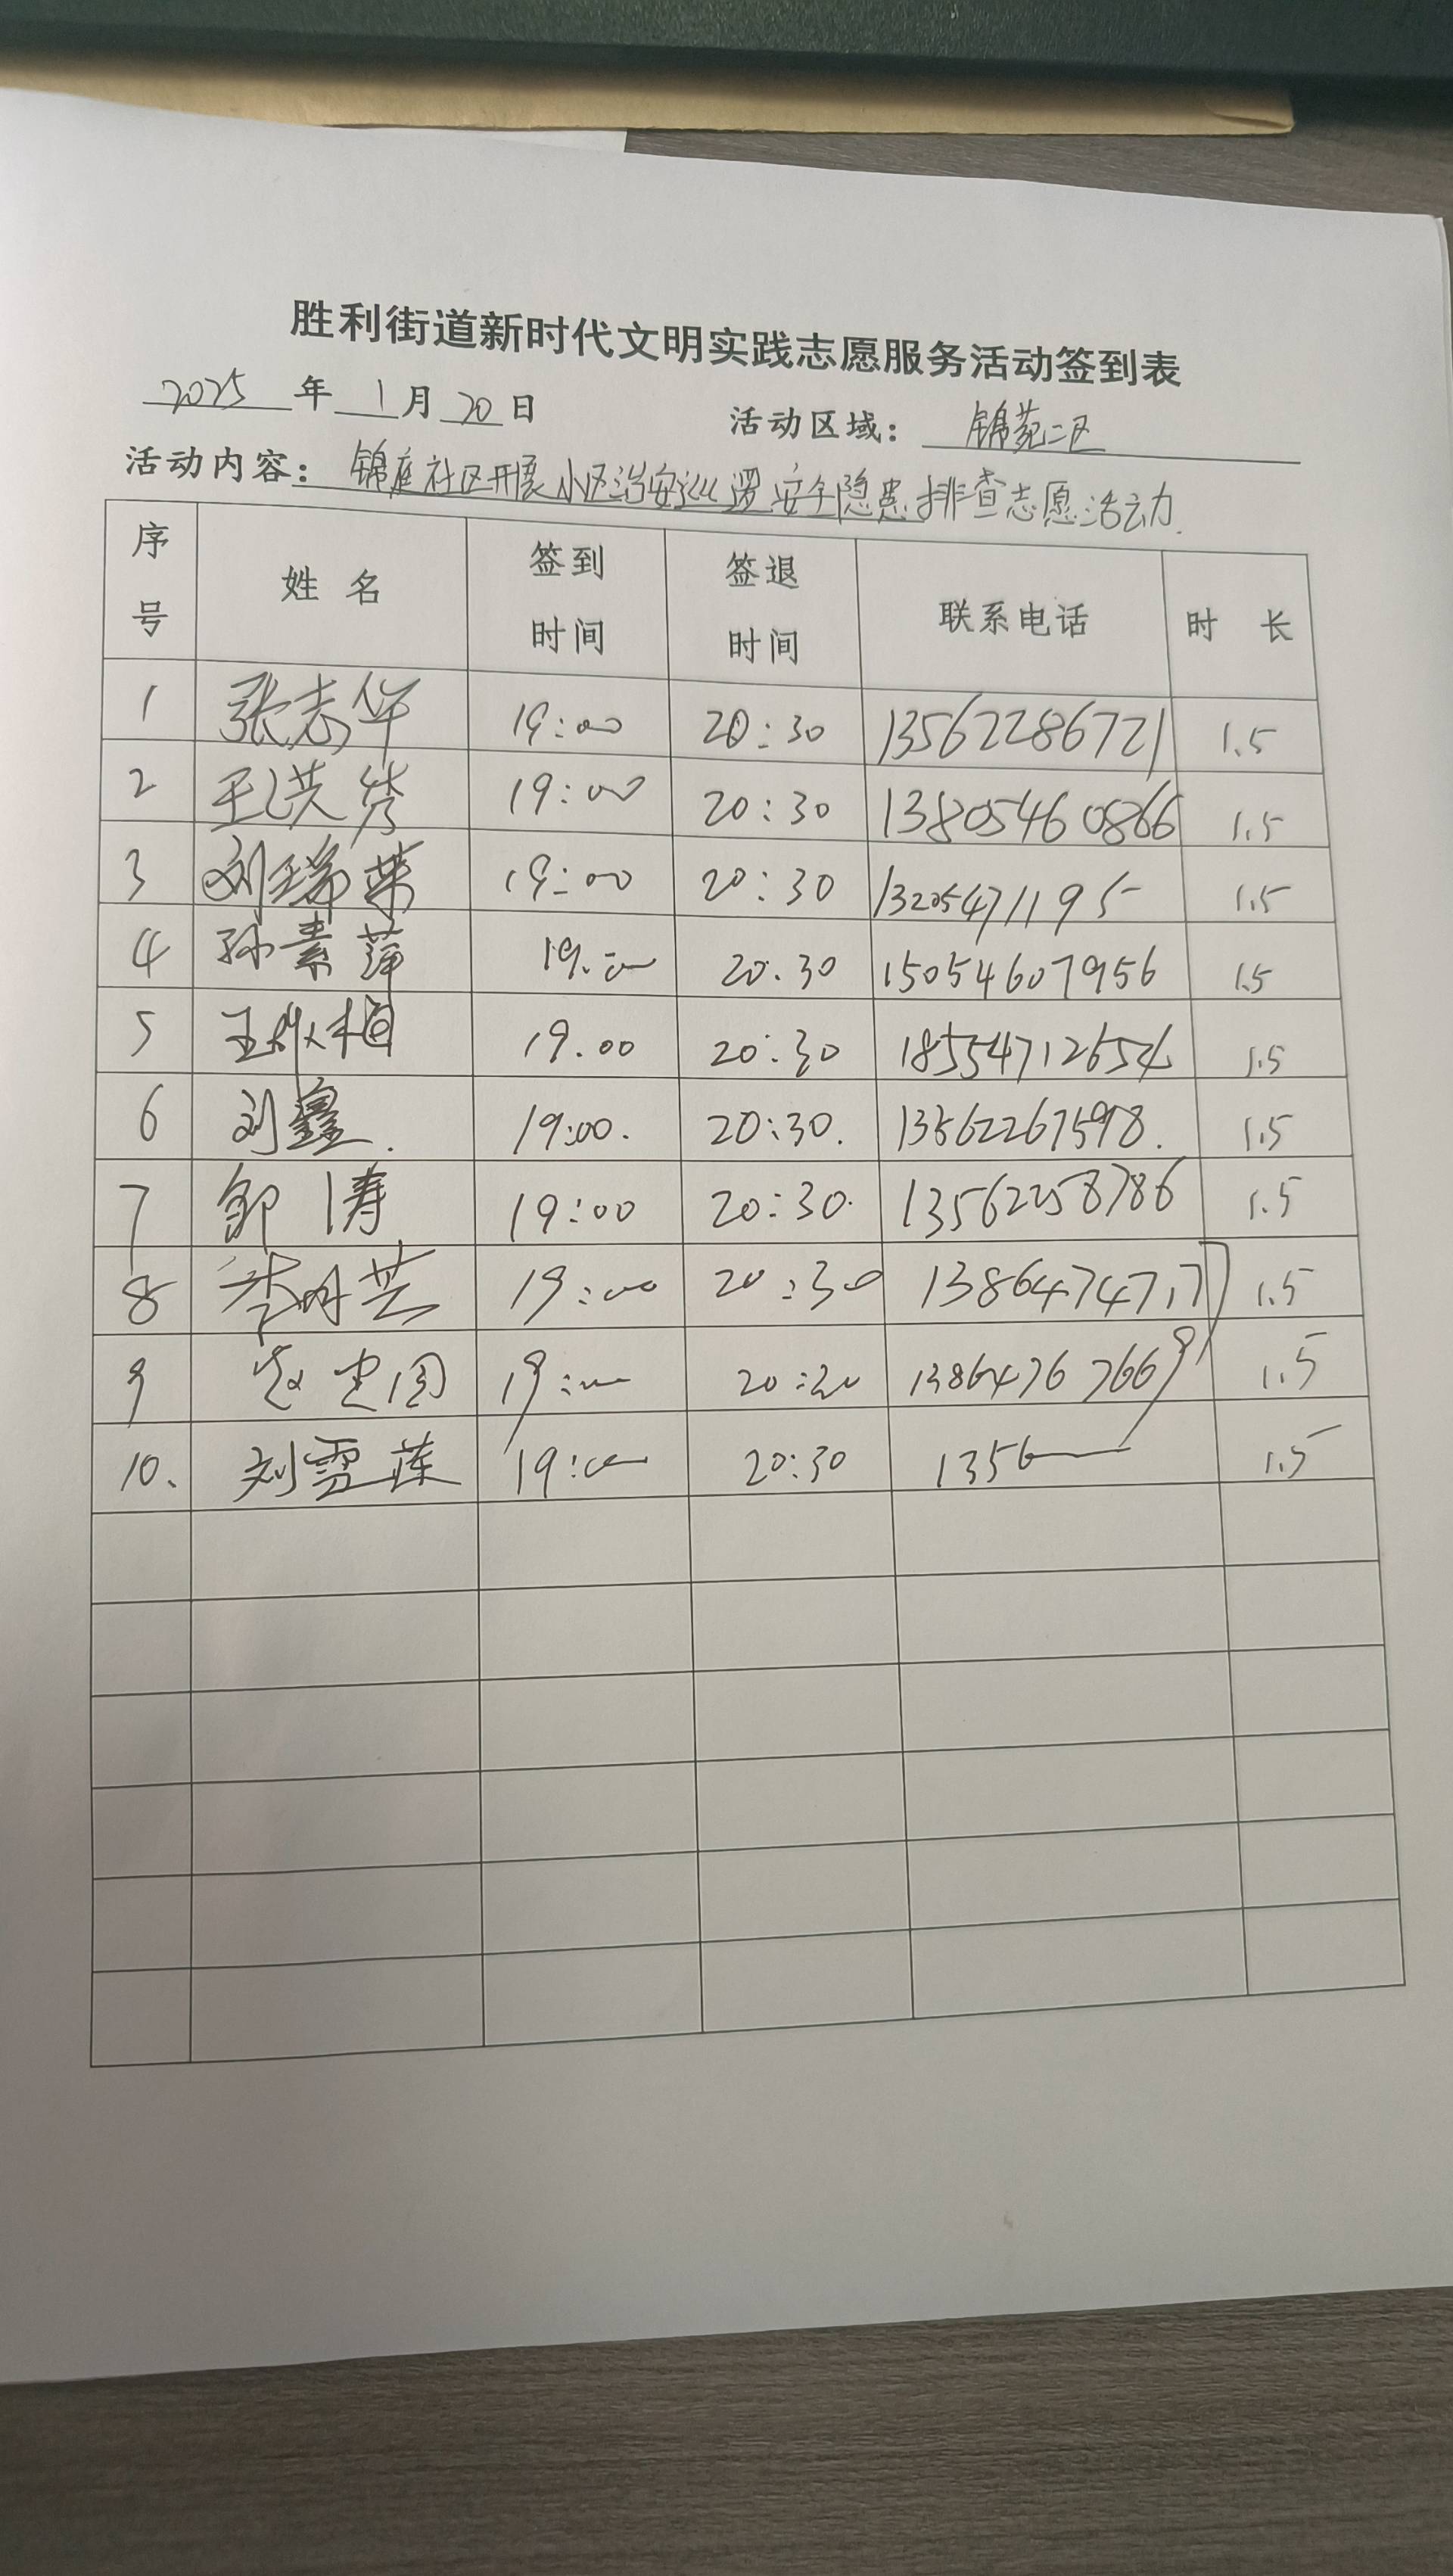 胜利街道新时代文明实践志愿服务活动签到表
2025 年 1 月 20 日 活动区域: 锦苑二区
活动内容: 锦庭社区开展小区治安巡逻安全隐患排查志愿活动.
序号 姓名 签到时间 签退时间 联系电话 时长
1 张志华 19:00 20:30 13562286721 1.5
2 王洪秀 19:00 20:30 13805460866 1.5
3 刘瑞英 19:00 20:30 13205471195 1.5
4 孙素萍 19:00 20:30 15054607956 1.5
5 王 19.00 20:30 18554712654 1.5
6 刘鑫. 19:00. 20:30. 1.5
7 邹涛 19:00 20:30. 13562258786 1.5
8 李明芸 19:00 20:30 1.5
9 19:00 20:30 13864767669 1.5
10. 刘雪莲 19:00 20:30 1356 1.5